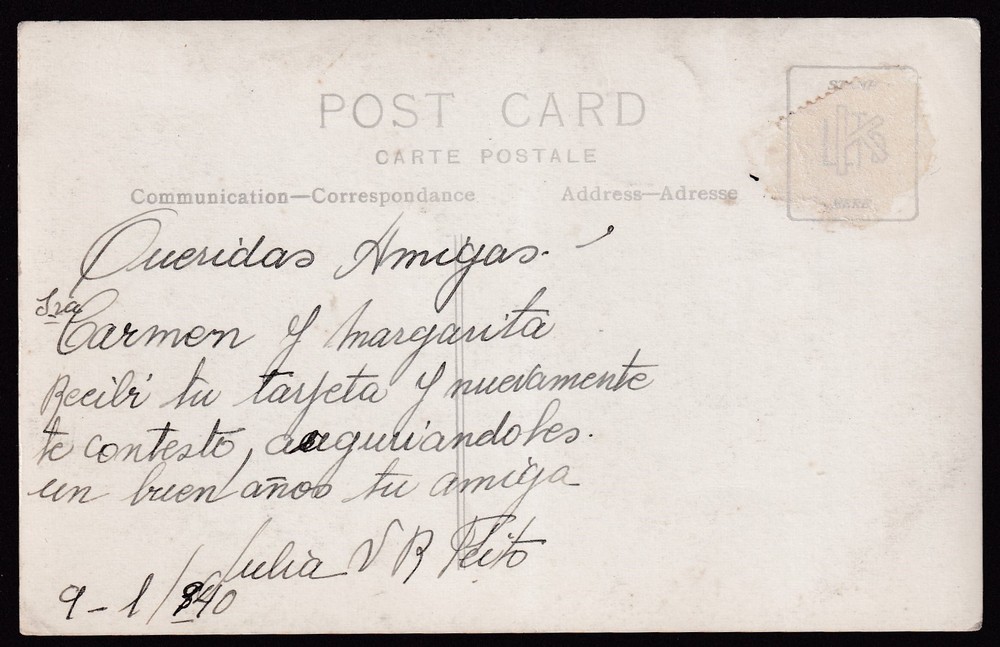 POST CARD
CARTE POSTALE
Communication—Correspondance
Address—Adresse
Queridas Amigas.
Sra
Carmen y Margarita
Recibi tu tarjeta y nuevamente
te contesto, auguriandoles.
un buen años tu amiga
Julia V R Feito
9-1/940